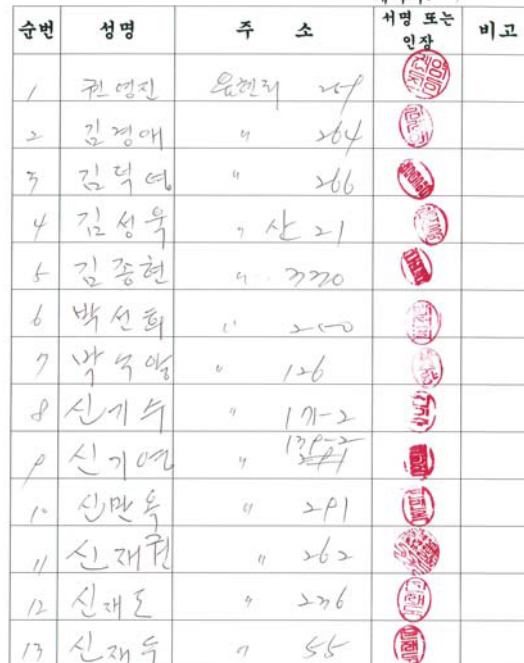 순번 성명 주 소 서명 또는 인장 비고
1 권영진 읍현리 259
2 김경애 〃 264
3 김덕여 〃 266
4 김성욱 〃 산 21
5 김종현 〃 330
6 박선희 〃 250
7 박 〃 126
8 신기수 〃 171-2
9 신기연 〃 139-2
10 신만옥 〃 291
11 신재권 〃 262
12 신재도 〃 236
13 신재수 〃 55